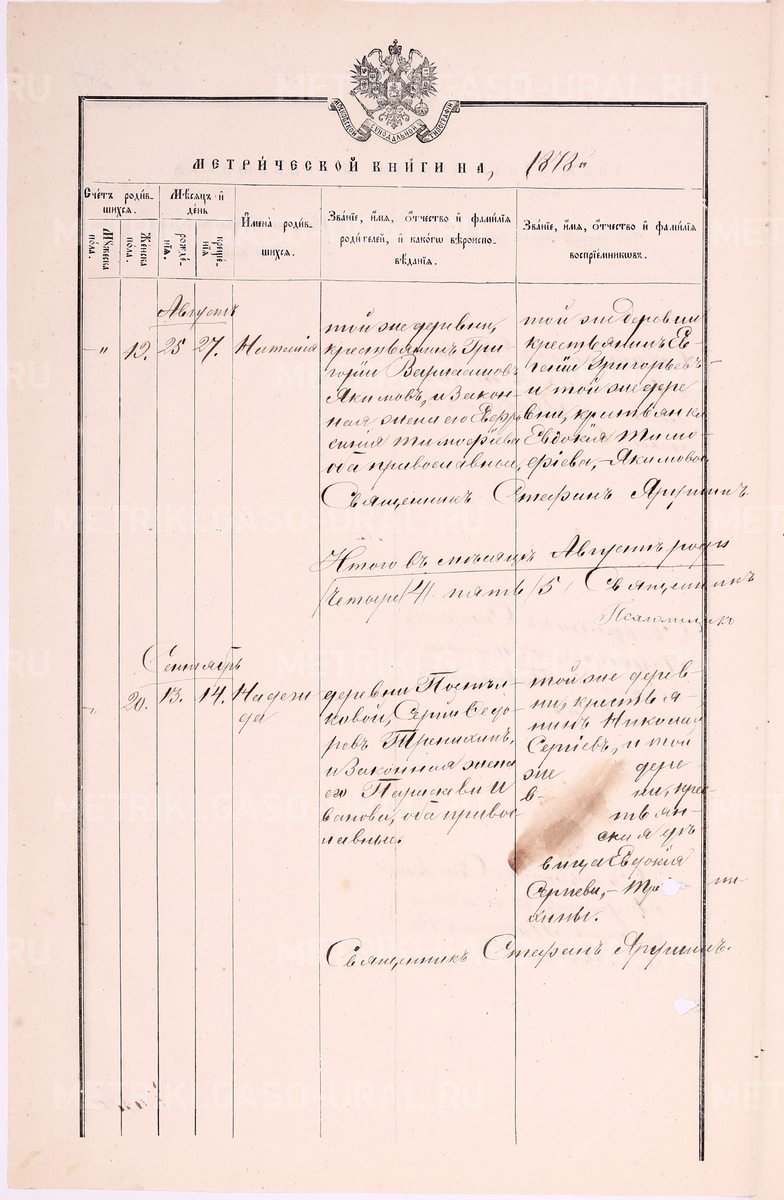 МОСКОВСКОЙ СѴНОДАЛЬНОЙ ТИПОГРАФІИ
МЕТРИ́ЧЕСКОЙ КНИ́ГИ НА, 1878
Счетъ роди́в-
шихся.
Мѣсяцъ и
день
И҆мена̀ роди́в-
шихся.
Зва́нїе, и҆́мя, ѻ҆́тчество и҆ фами́лїя
роди́телей, и҆ како́гѡ вѣроиспо-
вѣ́данїя.
Зва́нїе, и҆́мя, ѻ҆́тчество и҆ фами́лїя
воспрїе́мникѡвъ.
Мꙋжеска
пола.
Женска
пола.
рожде-
нїя.
креще-
нїя
Августъ
" 19. 25 27. Наталія
той же деревни,
крестьянинъ Гри-
горій
Якимовъ, и закон-
ная жена его Евфро
синія Тимофѣева
оба православной,
той же деревни
крестьянинъ Ев-
геній Григорьевъ
и той же дере
вни, крестьянка
Евдокія Тимо-
фѣева, Якимовы
Священникъ Стефанъ Ярушинъ
Итого въ мѣсяцѣ Августѣ роди
Четыре /4/ пять /5/ Священникъ
Сентябрь
" 20. 13. 14. Надеж
да
деревни
ковой, Сергій Ѳедо-
ровъ
и законная жена
его Параскева И
ванова, оба правос-
лавные.
той же дерев
ни, крестья-
нинъ Николай
Сергіевъ, и той
же дере
в- ни, крес-
тьян-
ская дѣ
вица Евдокія
Сергіева, - Тре ни
хины.
Священникъ Стефанъ Ярушинъ.
METRIKI.GASO-URAL.RU